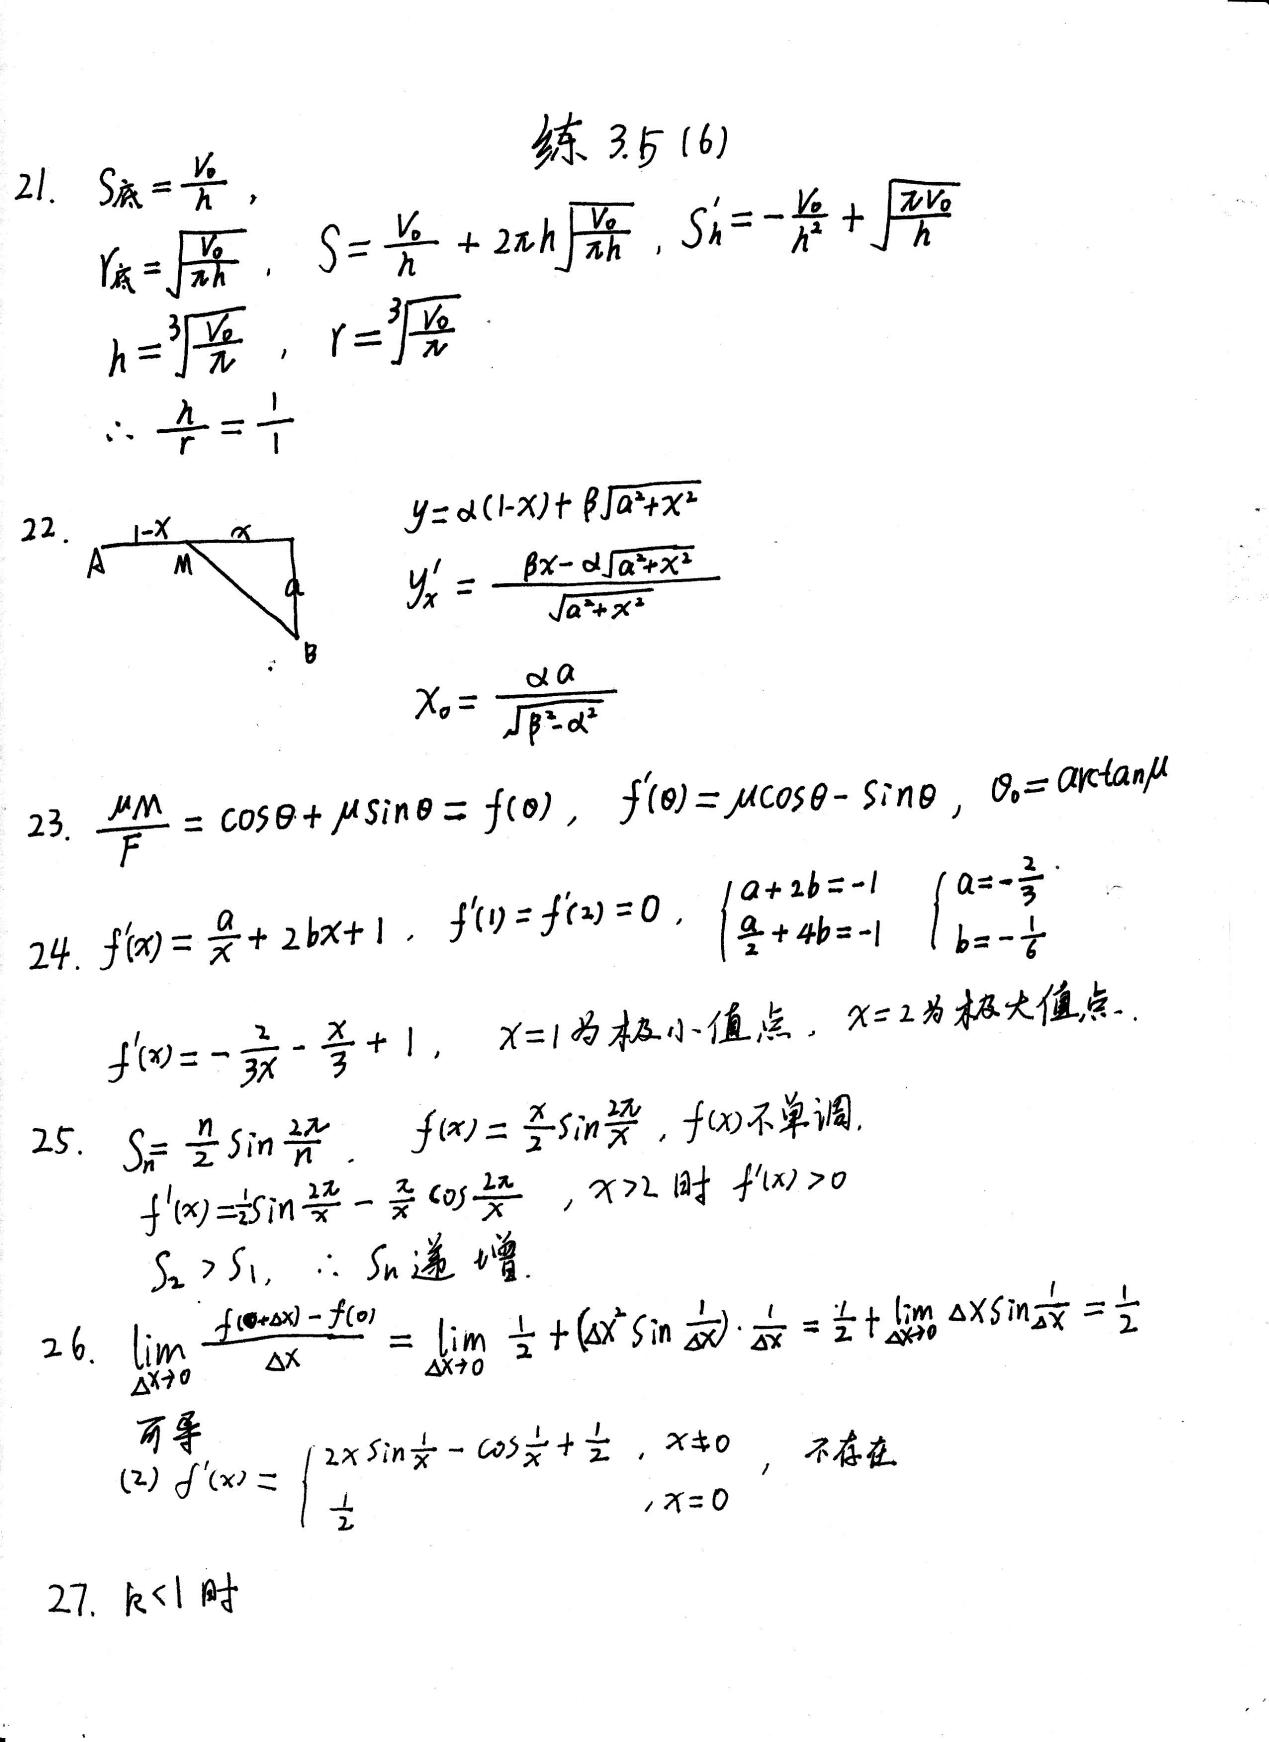 练 3.5 (6)
21. S底 = V₀/h ,
r底 = √(V₀/(πh)) , S = V₀/h + 2πh√(V₀/(πh)) , S'h = -V₀/h² + √(πV₀/h)
h = ³√(V₀/π) , r = ³√(V₀/π) .
∴ h/r = 1/1
22. A 1-x M x a B
y = α(1-x) + β√(a²+x²)
y'x = (βx - α√(a²+x²))/√(a²+x²)
x₀ = αa/√(β²-α²)
23. μM/F = cosθ + μsinθ = f(θ) , f'(θ) = μcosθ - sinθ , θ₀ = arctanμ
24. f'(x) = a/x + 2bx + 1 . f'(1) = f'(2) = 0 , { a + 2b = -1 { a = -2/3 .
a/2 + 4b = -1 b = -1/6
f'(x) = -2/(3x) - x/3 + 1 , x=1为极小值点 , x=2为极大值点 .
25. Sn = n/2 sin 2π/n . f(x) = x/2 sin 2π/x , f(x)不单调.
f'(x) = 1/2 sin 2π/x - π/x cos 2π/x , x>2时 f'(x)>0
S₂ > S₁, ∴ Sn 递增.
26. lim Δx→0 (f(0+Δx) - f(0))/Δx = lim Δx→0 1/2 + (Δx² sin 1/Δx) · 1/Δx = 1/2 + lim Δx→0 Δx sin 1/Δx = 1/2
可导
(2) f'(x) = { 2x sin 1/x - cos 1/x + 1/2 , x≠0 , 不存在
1/2 , x=0
27. k<1 时